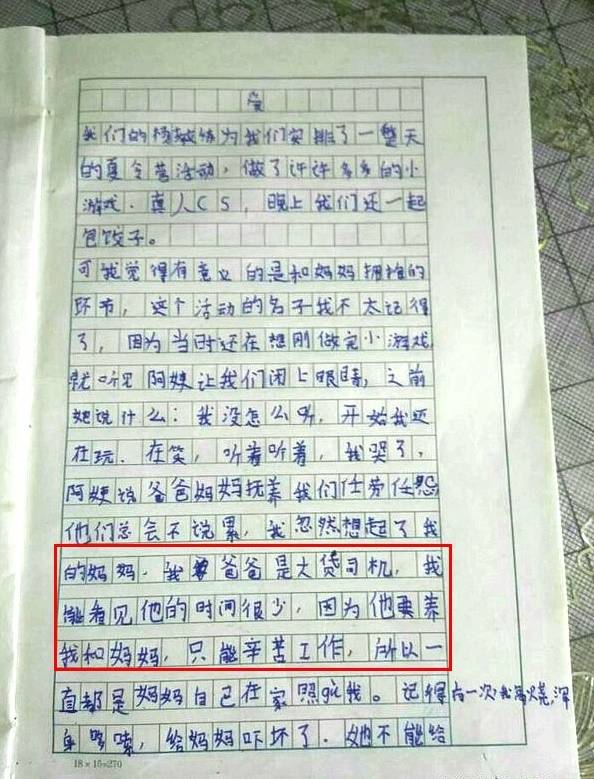 爱
我们的楼教练为我们安排了一整天
的夏令营活动，做了许许多多的小
游戏．真人CS，晚上我们还一起
包饺子。
可我觉得有意义的是和妈妈拥抱的
环节，这个活动的名子我不太记得
了，因为当时还在想刚做完小游戏
就听见阿姨让我们闭上眼睛，之前
她说什么：我没怎么听，开始我还
在玩．在笑，听着听着，我哭了，
阿姨说爸爸妈妈抚养我们任劳任怨
他们总会不说累，我忽然想起了我
的妈妈．我爸爸是大货司机，我
能看见他的时间很少，因为他要养
我和妈妈，只能辛苦工作，所以一
直都是妈妈自己在家照顾我。记得有一次我高烧，浑
身哆嗦，给妈妈吓坏了．她不能给
18×15=270